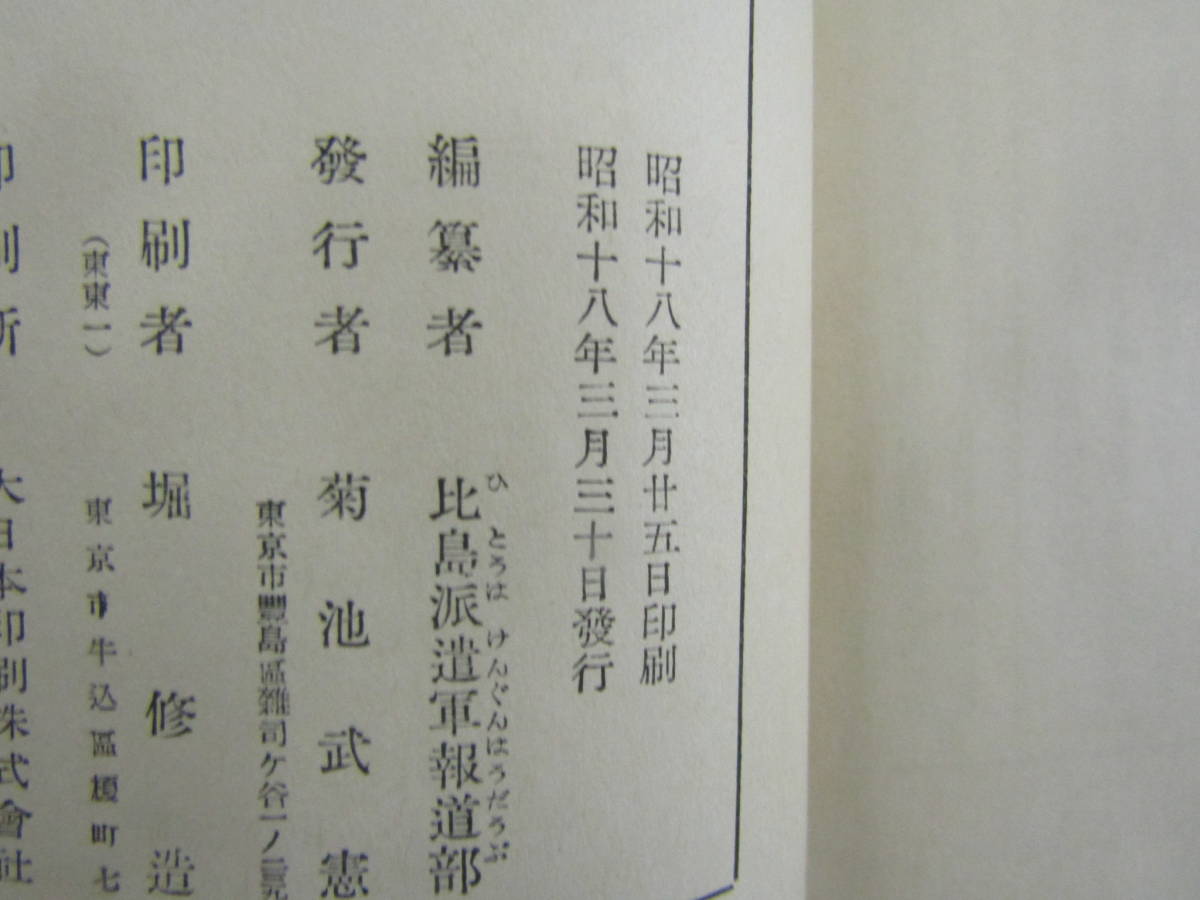 昭和十八年三月廿五日印刷
昭和十八年三月三十日發行
編纂者 比島派遣軍報道部
ひとうはけんぐんはうだうぶ
發行者 菊池武憲
東京市豐島區雜司ケ谷一ノ三三九
印刷者 堀修造
(東東一) 東京市牛込區榎町七
印刷所 大日本印刷株式會社